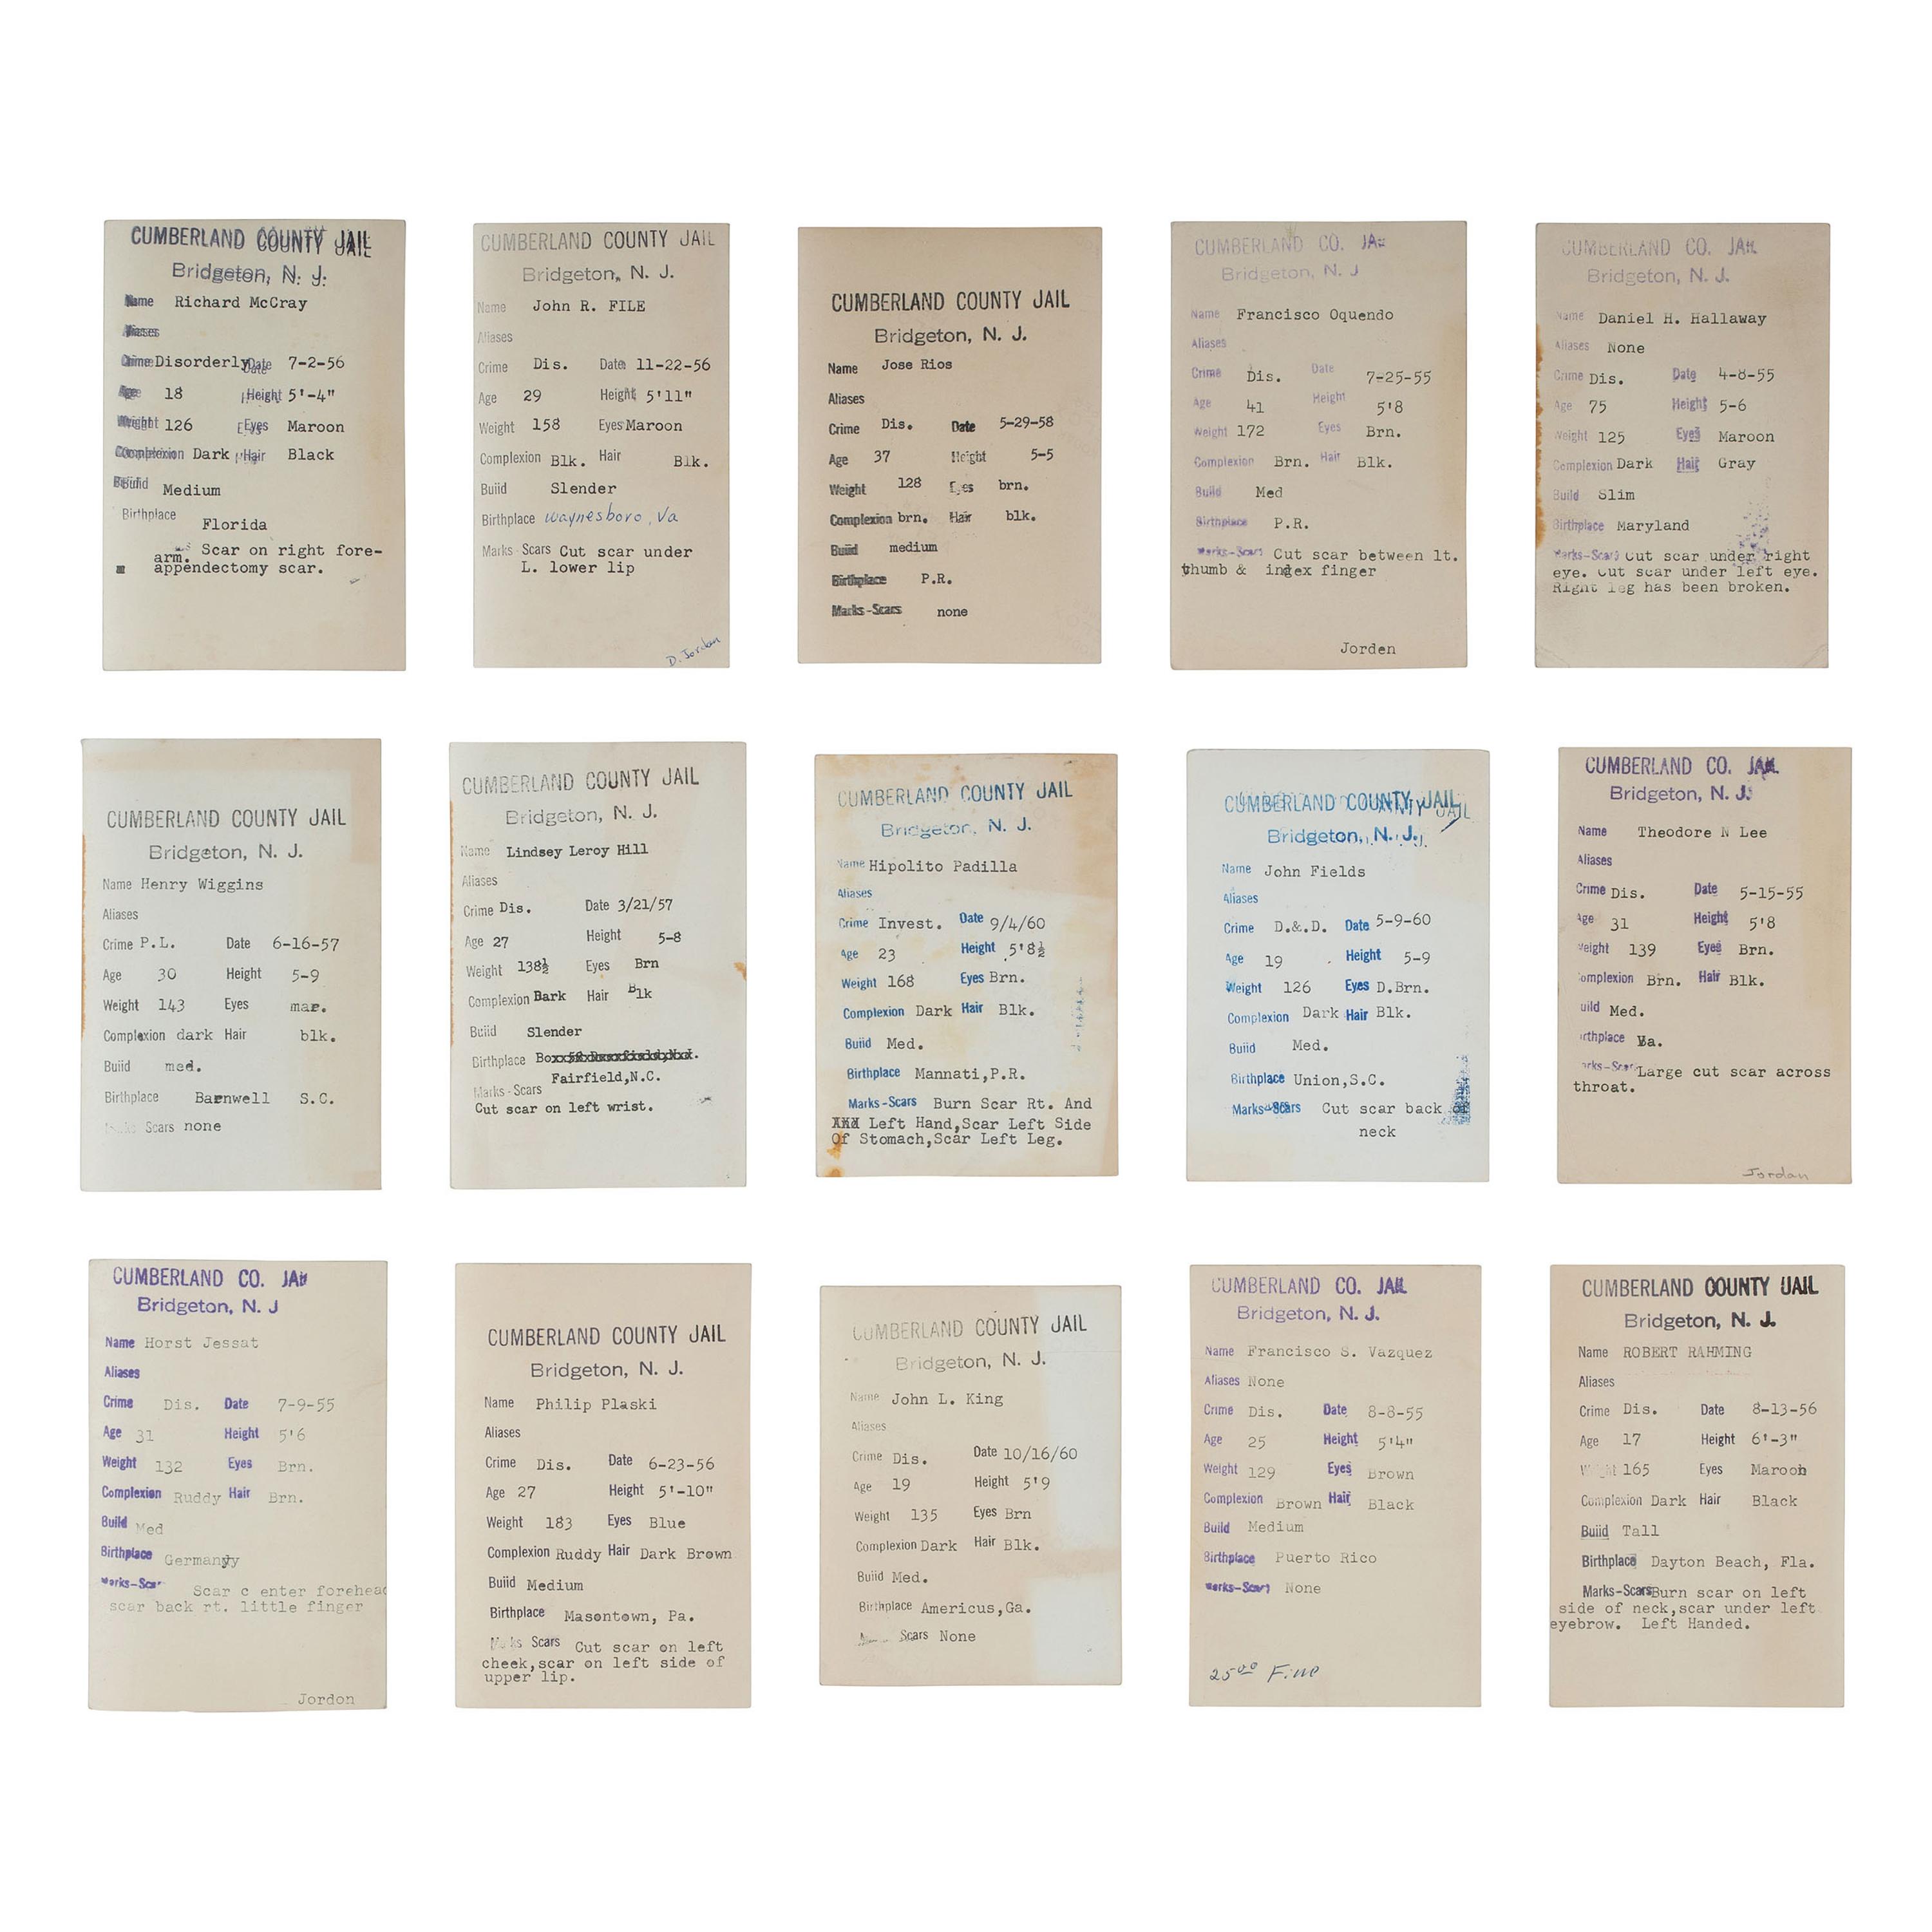 CUMBERLAND COUNTY JAIL
Bridgeton, N. J.
Name Richard McCray
Aliases
Crime Disorderly Date 7-2-56
Age 18 Height 5'-4"
Weight 126 Eyes Maroon
Complexion Dark Hair Black
Build Medium
Birthplace Florida
Scar on right fore-
arm.
appendectomy scar.
CUMBERLAND COUNTY JAIL
Bridgeton, N. J.
Name John R. FILE
Aliases
Crime Dis. Date 11-22-56
Age 29 Height 5'11"
Weight 158 Eyes Maroon
Complexion Blk. Hair Blk.
Buiid Slender
Birthplace Waynesboro, Va
Marks-Scars Cut scar under
L. lower lip
D. Jordan
CUMBERLAND COUNTY JAIL
Bridgeton, N. J.
Name Jose Rios
Aliases
Crime Dis. Date 5-29-58
Age 37 Height 5-5
Weight 128 Eyes brn.
Complexion brn. Hair blk.
Buiid medium
Birthplace P.R.
Marks-Scars none
CUMBERLAND CO. JAIL
Bridgeton, N. J
Name Francisco Oquendo
Aliases
Crime Dis. Date 7-25-55
Age 41 Height 5'8
Weight 172 Eyes Brn.
Complexion Brn. Hair Blk.
Build Med
Birthplace P.R.
Marks-Scars Cut scar between lt.
thumb & index finger
Jorden
CUMBERLAND CO. JAIL
Bridgeton, N. J.
Name Daniel H. Hallaway
Aliases None
Crime Dis. Date 4-8-55
Age 75 Height 5-6
Weight 125 Eyes Maroon
Complexion Dark Hair Gray
Build Slim
Birthplace Maryland
Marks-Scars Cut scar under right
eye. Cut scar under left eye.
Right leg has been broken.
CUMBERLAND COUNTY JAIL
Bridgeton, N. J.
Name Henry Wiggins
Aliases
Crime P.L. Date 6-16-57
Age 30 Height 5-9
Weight 143 Eyes mar.
Complexion dark Hair blk.
Buiid med.
Birthplace Barnwell S.C.
Scars none
CUMBERLAND COUNTY JAIL
Bridgeton, N. J.
Name Lindsey Leroy Hill
Aliases
Crime Dis. Date 3/21/57
Age 27 Height 5-8
Weight 138½ Eyes Brn
Complexion Dark Hair Blk
Buiid Slender
Birthplace
Fairfield,N.C.
Marks-Scars
Cut scar on left wrist.
CUMBERLAND COUNTY JAIL
Bridgeton, N. J.
Name Hipolito Padilla
Aliases
Crime Invest. Date 9/4/60
Age 23 Height 5'8½
Weight 168 Eyes Brn.
Complexion Dark Hair Blk.
Buiid Med.
Birthplace Mannati,P.R.
Marks-Scars Burn Scar Rt. And
Left Hand,Scar Left Side
Of Stomach,Scar Left Leg.
CUMBERLAND COUNTY JAIL
Bridgeton, N. J.
Name John Fields
Aliases
Crime D.&.D. Date 5-9-60
Age 19 Height 5-9
Weight 126 Eyes D.Brn.
Complexion Dark Hair Blk.
Buiid Med.
Birthplace Union,S.C.
Marks-Scars Cut scar back of
neck
CUMBERLAND CO. JAIL
Bridgeton, N. J.
Name Theodore N Lee
Aliases
Crime Dis. Date 5-15-55
Age 31 Height 5'8
Weight 139 Eyes Brn.
Complexion Brn. Hair Blk.
uild Med.
Birthplace Va.
Marks-Scars Large cut scar across
throat.
Jordan
CUMBERLAND CO. JAIL
Bridgeton, N. J
Name Horst Jessat
Aliases
Crime Dis. Date 7-9-55
Age 31 Height 5'6
Weight 132 Eyes Brn.
Complexion Ruddy Hair Brn.
Build Med
Birthplace Germany
Marks-Scars Scar c enter forehead
scar back rt. little finger
Jordon
CUMBERLAND COUNTY JAIL
Bridgeton, N. J.
Name Philip Plaski
Aliases
Crime Dis. Date 6-23-56
Age 27 Height 5'-10"
Weight 183 Eyes Blue
Complexion Ruddy Hair Dark Brown
Buiid Medium
Birthplace Masontown, Pa.
Marks Scars Cut scar on left
cheek,scar on left side of
upper lip.
CUMBERLAND COUNTY JAIL
Bridgeton, N. J.
Name John L. King
Aliases
Crime Dis. Date 10/16/60
Age 19 Height 5'9
Weight 135 Eyes Brn
Complexion Dark Hair Blk.
Buiid Med.
Birthplace Americus,Ga.
Scars None
CUMBERLAND CO. JAIL
Bridgeton, N. J.
Name Francisco S. Vazquez
Aliases None
Crime Dis. Date 8-8-55
Age 25 Height 5'4"
Weight 129 Eyes Brown
Complexion Brown Hair Black
Build Medium
Birthplace Puerto Rico
Marks-Scars None
25.00 Fine
CUMBERLAND COUNTY JAIL
Bridgeton, N. J.
Name ROBERT RAHMING
Aliases
Crime Dis. Date 8-13-56
Age 17 Height 6'-3"
Weight 165 Eyes Maroon
Complexion Dark Hair Black
Buiid Tall
Birthplace Dayton Beach, Fla.
Marks-Scars Burn scar on left
side of neck,scar under left
eyebrow. Left Handed.